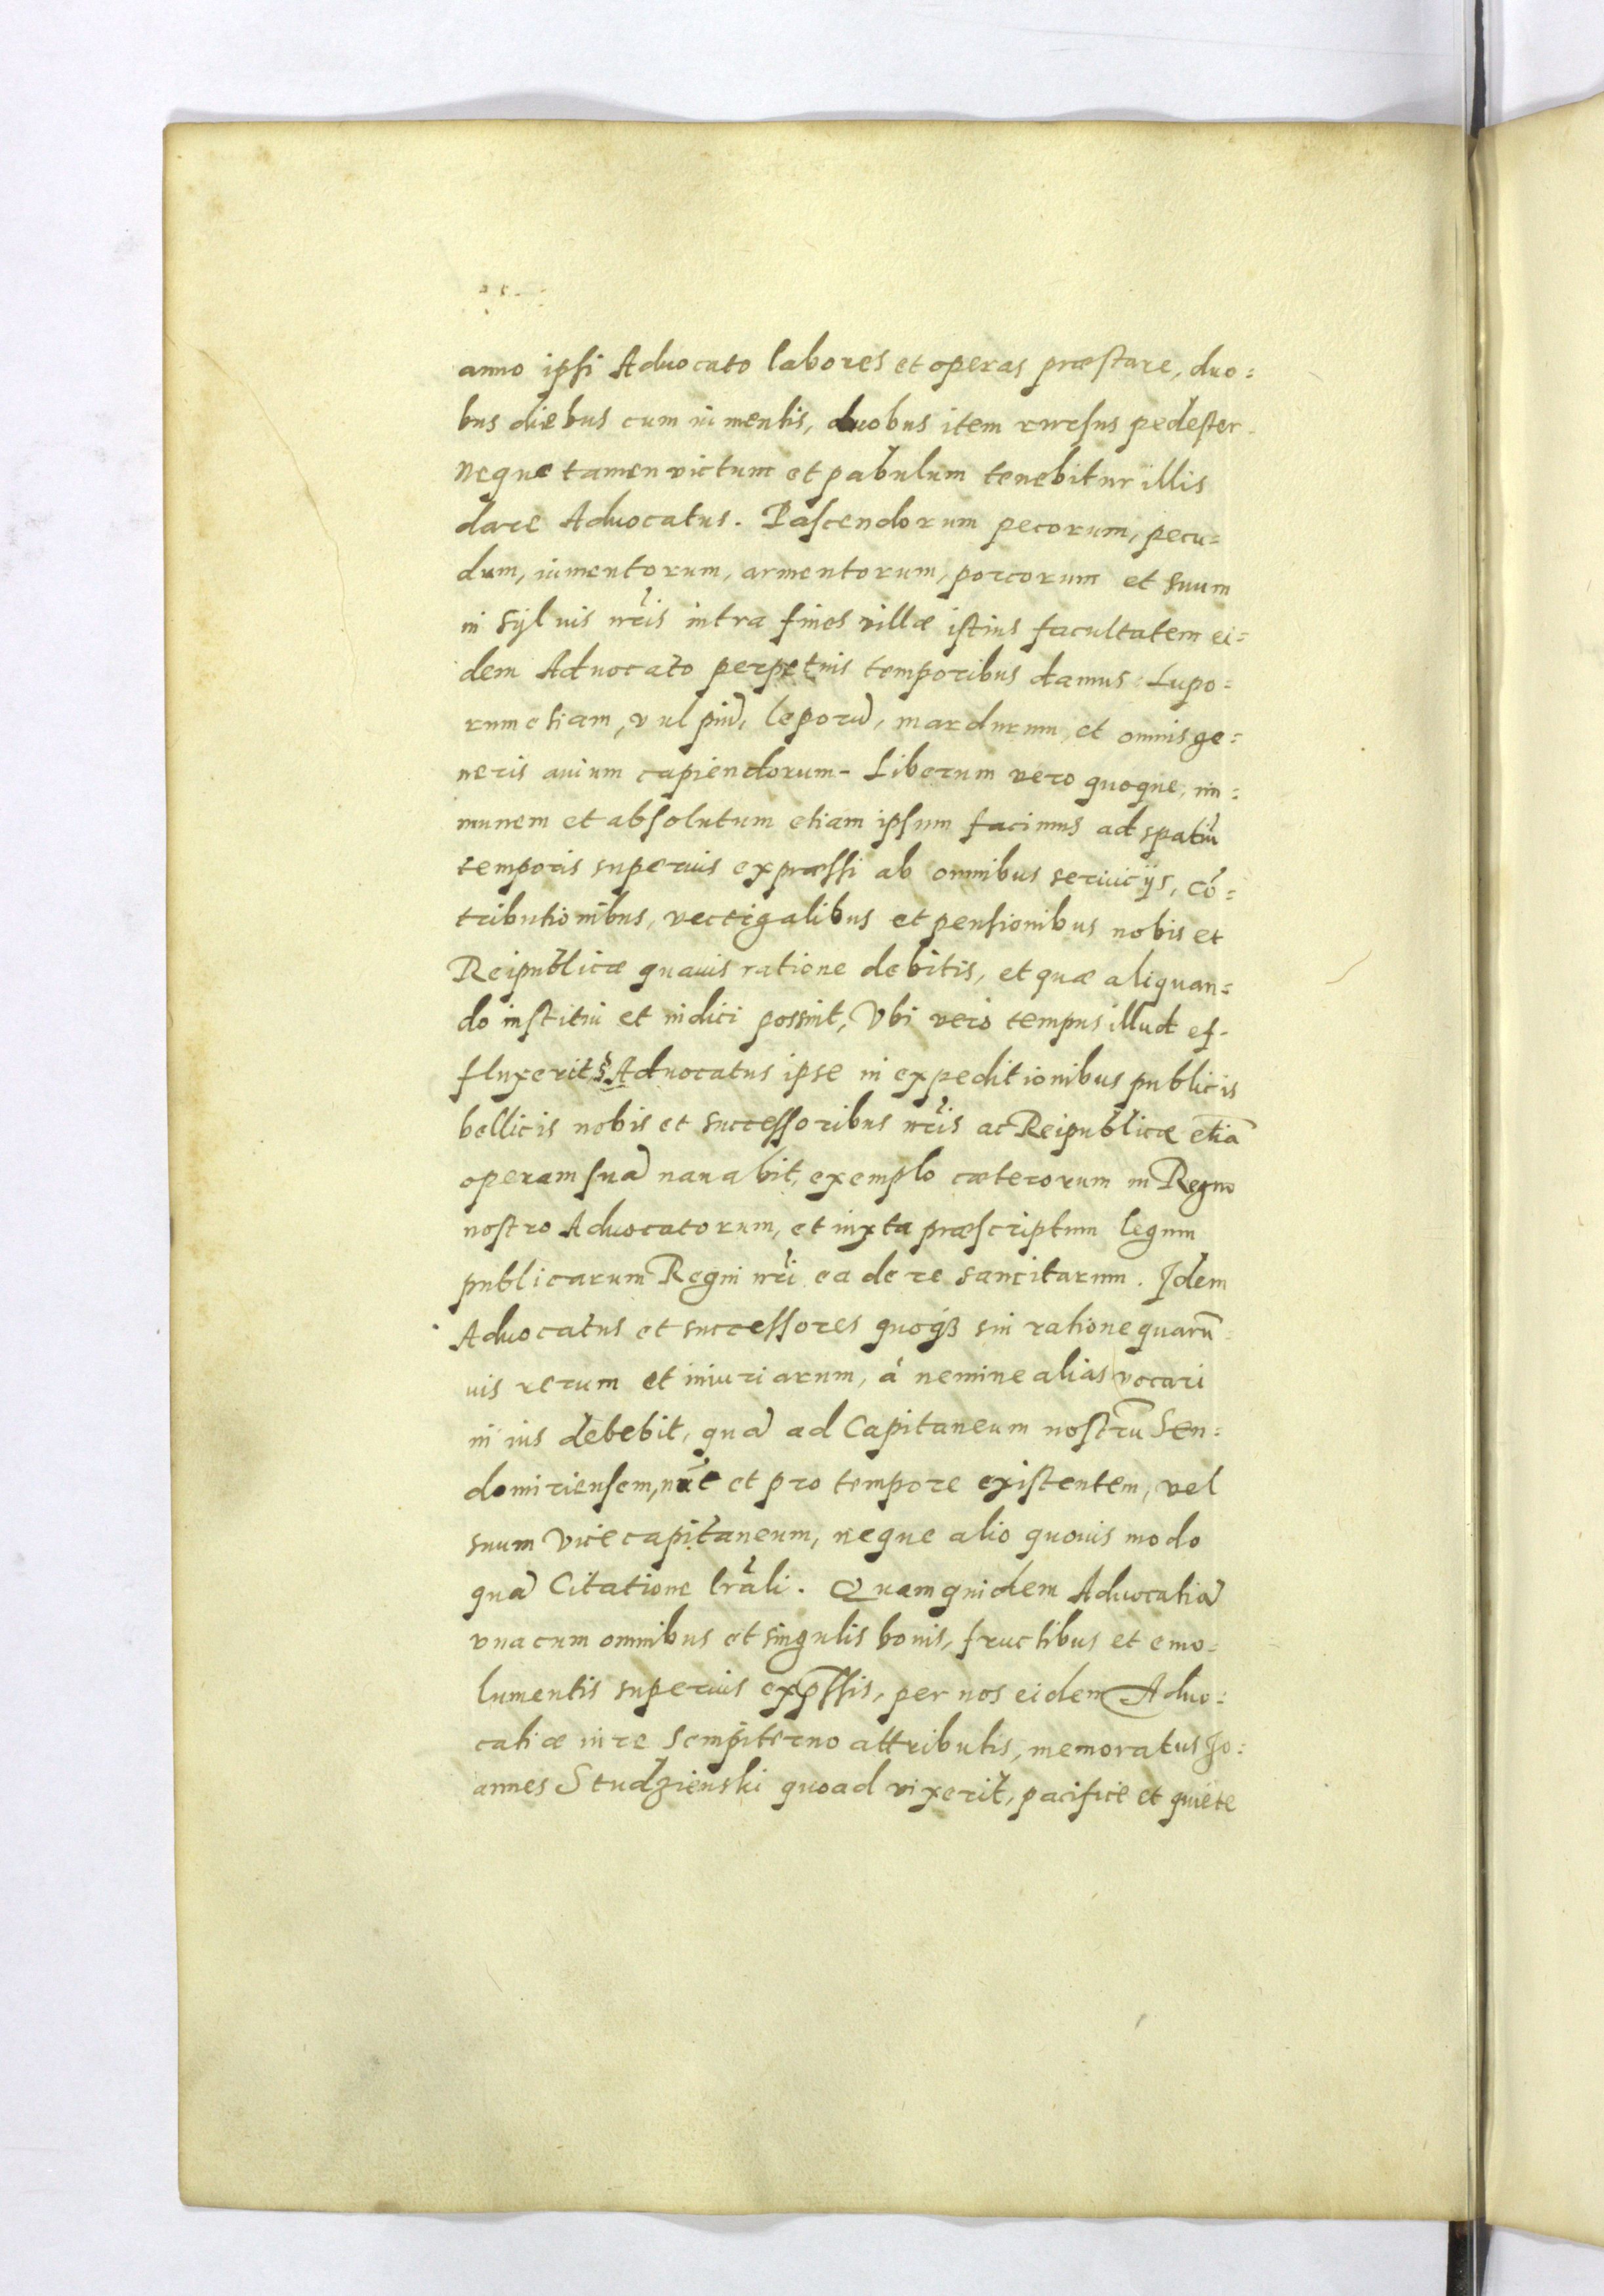 anno ipsi Aduocato labores et operas præstare, duo=
bus diebus cum iumentis, duobus item rursus pedester.
Neque tamen victum et pabulum tenebitur illis
dare Aduocatus. Pascendorum pecorum, pecu=
dum, iumentorum, armentorum, porcorum et suum
in syluis nr̃is intra fines villæ istius facultatem ei=
dem Aduocato perpetuis temporibus damus Lupo=
rum etiam, vulpiũ, leporũ, mardurum et omnis ge=
neris auium capiendorum- Liberum vero quoque, im=
munem et absolutum etiam ipsum facimus ad spatiũ
temporis superius expræssi ab omnibus seruicijs, cõ=
tributionibus, vectigalibus et pensionibus nobis et
Reipublicæ quauis ratione debitis, et quæ aliquan=
do institui et indici possint, Vbi vero tempus illud ef-
fluxerit, Aduocatus ipse in expeditionibus publicis
bellicis nobis et successoribus nr̃is ac Reipublicæ etiã
operam suã nauabit, exemplo cæterorum in Regno
nostro Aduocatorum, et iuxta præscriptum legum
publicarum Regni nr̃i ea de re sancitarum. Idem
Aduocatus et successores quoqꝫ sui ratione quarũ=
uis rerum et iniuriarum, à nemine alias vocari
in ius debebit, quã ad Capitaneum nostrũ Sen=
domiriensem, nũc et pro tempore existentem, vel
suum Vicecapitaneum, neque alio quouis modo
quã Citatione lrãli. Quamquidem Aduocatiã
vna cum omnibus et singulis bonis, fructibus et emo=
lumentis superius exp̃ssis, per nos eidem Aduo=
catiæ iure sempiterno attributis, memoratus Jo=
annes Studzienski quoad vixerit, pacifice et quiete